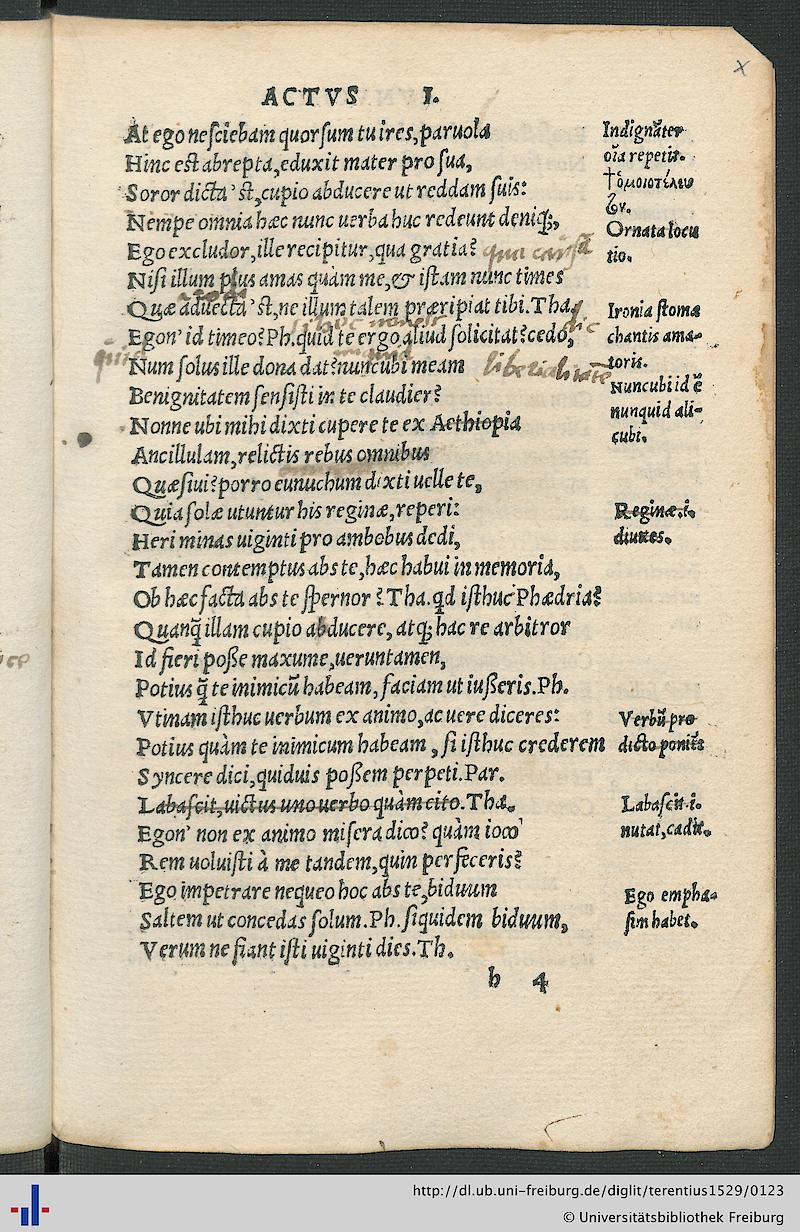 ACTVS I.
At ego nesciebam quorsum tu ires, paruola
Hinc est abrepta, eduxit mater pro sua,
Soror dicta'st, cupio abducere ut reddam suis:
Nempe omnia hæc nunc uerba huc redeunt deniq;,
Ego excludor, ille recipitur, qua gratia? qua causa
Nisi illum plus amas quàm me, & istam nunc times
Quæ aduecta'st, ne illum talem præripiat tibi. Tha.
Egon' id timeo? Ph. quid te ergo aliud solicitat? cedo,
Num solus ille dona dat? nuncubi meam
Benignitatem sensisti in te claudier?
Nonne ubi mihi dixti cupere te ex Aethiopia
Ancillulam, relictis rebus omnibus
Quæsiui? porro eunuchum dixti uelle te,
Quia solæ utuntur his reginæ, reperi:
Heri minas uiginti pro ambobus dedi,
Tamen contemptus abs te, hæc habui in memoria,
Ob hæc facta abs te spernor? Tha. qd isthuc Phædria?
Quanq̃ illam cupio abducere, atq; hac re arbitror
Id fieri posse maxume, ueruntamen,
Potius q̃ te inimicũ habeam, faciam ut iusseris. Ph.
Vtinam isthuc uerbum ex animo, ac uere diceres:
Potius quàm te inimicum habeam, si isthuc crederem
Syncere dici, quiduis possem perpeti. Par.
Labascit, uictus uno uerbo quàm cito. Tha.
Egon' non ex animo misera dico? quàm ioco'
Rem uoluisti à me tandem, quin perfeceris?
Ego impetrare nequeo hoc abs te, biduum
Saltem ut concedas solum. Ph. siquidem biduum,
Verum ne fiant isti uiginti dies. Th.
b 4
Indignãter
oĩa repetit.
†ὁμοιοτέλευ
Ornata locu
tio.
Ironia stoma
chantis ama-
toris.
Nuncubi id ẽ
nunquid ali-
cubi.
Reginæ.i.
diuites.
Verbũ pro
dicto ponit̃
Labascit.i.
nutat, cadit.
Ego empha-
sim habet.
http://dl.ub.uni-freiburg.de/diglit/terentius1529/0123
© Universitätsbibliothek Freiburg